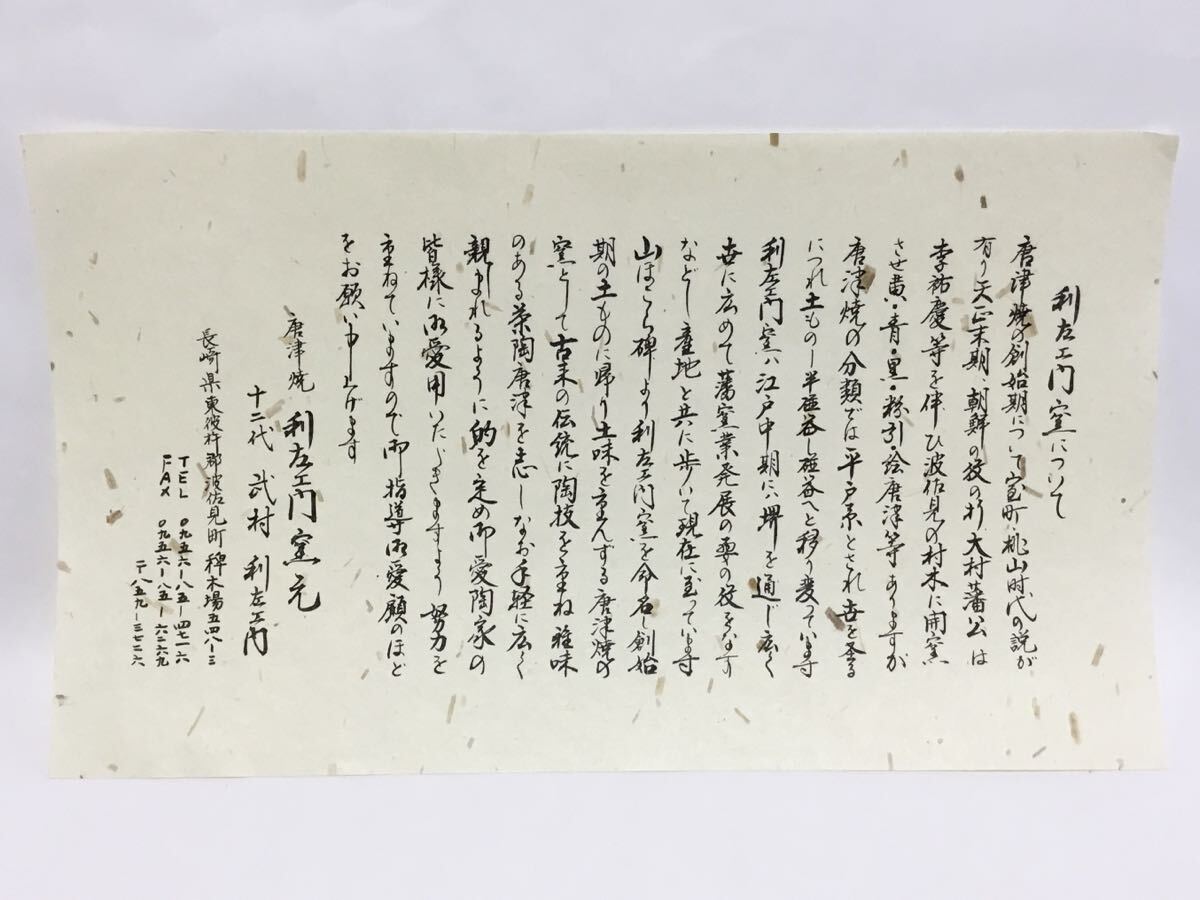 利左エ門窯について
唐津焼の創始期について室町、桃山時代の説が
有り天正末期、朝鮮の役の折、大村藩公は
李祐慶等を伴ひ波佐見の村木に開窯
させ黄・青・黒・粉引・絵唐津等ありますが
唐津焼の分類では平戸系とされ世を経る
につれ土もの〜半磁器〜磁器へと移り変っています
利左エ門窯ハ江戸中期にハ堺を通じ広く
世に広めて藩窯業発展の要の役をなす
などし産地と共に歩いて現在に至っています
山ほこら碑より利左エ門窯を命名し創始
期の土ものに帰り土味を重んずる唐津焼の
窯として古来の伝統に陶技を重ね雅味
のある茶陶唐津を志しなお手軽に広く
親しまれるように的を定め御愛陶家の
皆様に御愛用いただきますよう努力を
重ねていますので御指導御愛顧のほど
をお願い申し上げます
唐津焼 利左エ門窯元
十二代 武村 利左エ門
長崎県東彼杵郡波佐見町稗木場五四八−三
TEL ○九五六−八五−四七一六
FAX ○九五六−八五−六二六九
〒八五九−三七二六